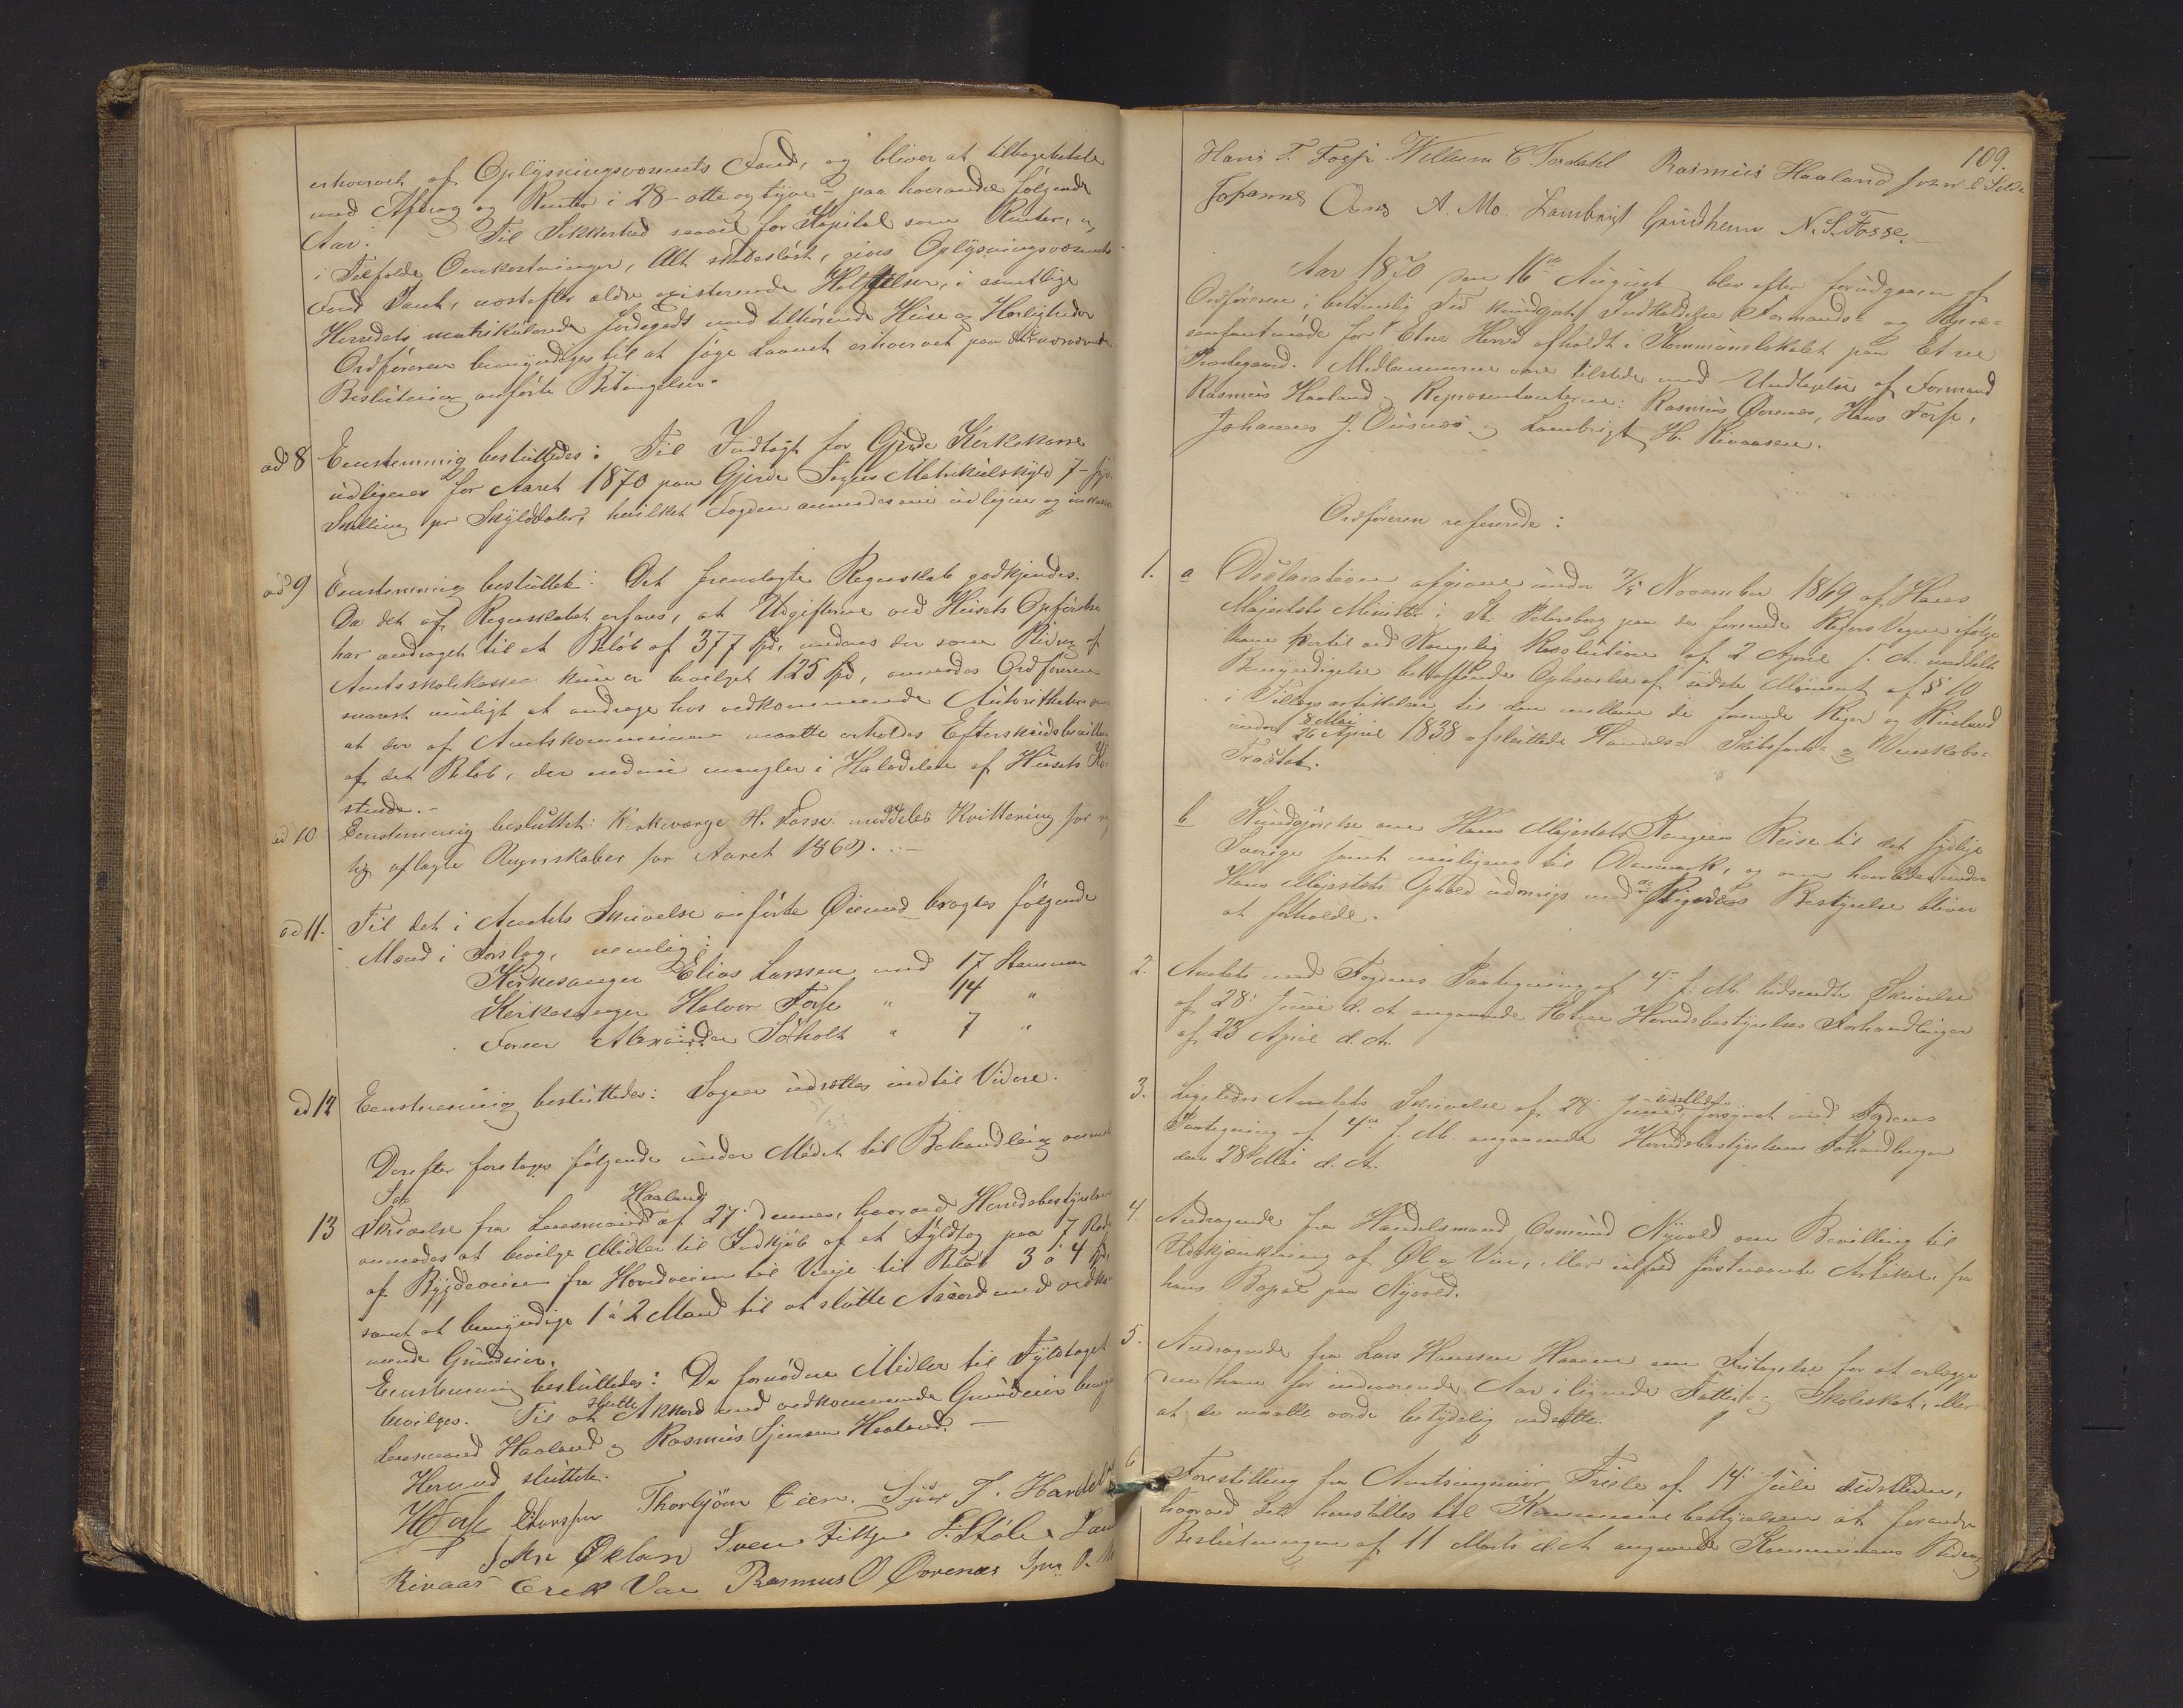 erhvervet af Oplysningsvæsenets Fond, og bliver at tilbagebetale
med Afdrag og Renter i 28 - otte og tyve - paa hverandre følgende
Aar. Til Sikkerhed saavel for Kapital som Renter, og
i Tilfælde Omkostninger, Alt skadesløst, gives Oplysningsvæsenets
Fond Pant, næst efter ældre existerende Heftelser, i samtlige
Herredets matrikulerede Jordegods med tilhørende Huse og Herligheder
Ordføreren bemyndiges til at søge Laanet erhvervet paa
Beslutning anførte Betingelser.
ad 8 Eenstemmig besluttedes: Til Indtægt for Gjerde Kirkekasse
udlignes for Aaret 1870 paa Gjerde Sogns Matrikulskyld 7 - syv
Skilling pr Skylddaler, hvilket Fogden anmodes om udligne og
ad 9 Eenstemmig besluttet: Det fremlagte Regnskab godkjendes.
Da det af Regnskabet erfares, at Udgifterne ved Husets Opførelse
har andraget til et Beløb af 377 Spd, medens der som Bidrag af
Amtsskolekassen kun er bevilget 125 Spd, anmodes Ordføreren
snarest muligt at andrage hos vedkommende Autoriteter om
at der af Amtskommunen maatte erholdes Efterskudsbevilling
af det Beløb, der endnu mangler i Halvdelen af Husets
ad 10 Eenstemmig besluttet: Kirkeværge H. Fosse meddeles Kvittering for
aflagte Regnskaber for Aaret 1869.
ad 11. Til det i Amtets Skrivelse anførte Øiemed bragtes følgende
Mænd i Forslag, nemlig:
Kirkesanger Elias Larssen med 17 Stemmer
Kirkesanger Halvor Fosse " 14 "
Alexander Søholt " 7 "
ad 12 Eenstemmig besluttedes: Sagen udsættes indtil Videre.
Derefter foretoges følgende under Mødet til Behandling
Sag
13 Skrivelse fra Lensmand Haaland af 27. dennes, hvorved Herredsbestyrelsen
anmodes at bevilge Midler til Indkjøb af et Fyldtag paa 7 Rode
af Bygdeveien fra Hovedveien til Vinje til Beløb 3 à 4 Spd,
samt at bemyndige 1 à 2 Mand til at slutte Accord med vedkom-
mende Grundeier.
Eenstemmig besluttedes: De fornødne Midler til Fyldtaget
bevilges. Til at slutte Akkord med vedkommende Grundeier
Lensmand Haaland og Rasmus Haaland. -
Hermed sluttet.
Thorbjørn Eien.
John Øklan Sven Fitje
Erik Vae Rasmus O Øvrenæs
109.
Hans T. Fosse Willum E Tesdahl Rasmus Haaland
Johannes A. Mo. Lambrigt Grindheim N. S. Fosse.
Aar 1870 den 16de August blev efter forudgaaen af
Ordføreren i betimelig Tid kundgjort Indkaldelse Formands- og Repræ-
sentantmøde for Etne Herred afholdt i Kommunelokalet paa Etne
Præstegaard. Medlemmerne vare tilstede med Undtagelse af Formand
Rasmus Haaland og Repræsentanterne: Rasmus Øvrenæs, Hans Fosse,
Johannes J. Ousnæs og Lambrigt H. Rivaasen.
Ordføreren refererede:
1. a Deklaration afgiven under 17/5 November 1869 af Hans
Majestæts Minister i St. Petersborg paa de forenede Rigers Vegne ifølge
ham dertil ved Kongelig Resolution af 2 April f. A. meddelte
Bemyndigelse betræffende Ophævelse af sidste Moment af § 10
i Tillægsartiklerne til den mellem de forenede Riger og Rusland
under 8 Mai / 26 April 1838 afsluttede Handels- Skibsfarts- og Venskabs-
Traktat.
b Kundgjørelse om Hans Majestæts Kongens Reise til det sydlige
Sverige samt muligens til Danmark, og om hvorledes under
Hans Majestæts Ophold udenrigs med de Rigernes Bestyrelse bliver
at forholde.
2. Amtets med Fogdens Paategning af 4de f. M. tilsendte Skrivelse
af 28. Juni d. A. angaaende Etne Herredsbestyrelses Forhandlinger
af 23 April d. A.
3. Ligeledes Amtets Skrivelse af 28 Juni sidstleden, forsynet med Fogdens
Paategning af 4de f. M. angaaende Herredsbestyrelsens Forhandlinger
den 28de Mai d. A.
4. Andragende fra Handelsmand Osmund Nyvold om Bevilling til
Udskjænkning af Øl og Vin, eller ialfald førstnævnte Artikel, fra
hans Bopæl paa Nyvold.
5. Andragende fra Lars Hanssen Haaim om Fritagelse for at erlægge
den ham for indeværende Aar ilignede Fattig- og Skoleskat, eller
at de maatte vorde betydelig nedsatte.
6 Forestilling fra Amtsingeniør Friele af 14. Juli sidstleden,
hvorved det henstilles til Kommunebestyrelsen at forandre
Beslutningen af 11 Marts d. A. angaaende Kommunens Bidrag